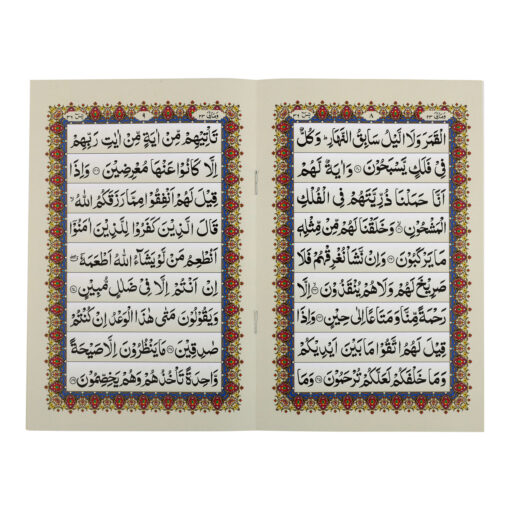 يٰسٓ ٣٦ ٨ وَمَالِيَ ٢٣
الْقَمَرَ وَلَا الَّيْلُ سَابِقُ النَّهَارِ ؕ وَكُلٌّ
فِىْ فَلَكٍ يَّسْبَحُوْنَ ۝ وَاٰيَةٌ لَّهُمْ
اَنَّا حَمَلْنَا ذُرِّيَّتَهُمْ فِى الْفُلْكِ
الْمَشْحُوْنِ ۝ وَخَلَقْنَا لَهُمْ مِّنْ مِّثْلِهٖ
مَا يَرْكَبُوْنَ ۝ وَاِنْ نَّشَاْ نُغْرِقْهُمْ فَلَا
صَرِيْخَ لَهُمْ وَلَا هُمْ يُنْقَذُوْنَ ۝ اِلَّا
رَحْمَةً مِّنَّا وَمَتَاعًا اِلٰى حِيْنٍ ۝ وَاِذَا
قِيْلَ لَهُمُ اتَّقُوْا مَا بَيْنَ اَيْدِيْكُمْ
وَمَا خَلْفَكُمْ لَعَلَّكُمْ تُرْحَمُوْنَ ۝ وَمَا
يٰسٓ ٣٦ ٩ وَمَالِيَ ٢٣
تَاْتِيْهِمْ مِّنْ اٰيَةٍ مِّنْ اٰيٰتِ رَبِّهِمْ
اِلَّا كَانُوْا عَنْهَا مُعْرِضِيْنَ ۝ وَاِذَا
قِيْلَ لَهُمْ اَنْفِقُوْا مِمَّا رَزَقَكُمُ اللّٰهُ ۙ
قَالَ الَّذِيْنَ كَفَرُوْا لِلَّذِيْنَ اٰمَنُوْۤا
اَنُطْعِمُ مَنْ لَّوْ يَشَآءُ اللّٰهُ اَطْعَمَهٗۤ ۖ
اِنْ اَنْتُمْ اِلَّا فِىْ ضَلٰلٍ مُّبِيْنٍ ۝
وَيَقُوْلُوْنَ مَتٰى هٰذَا الْوَعْدُ اِنْ كُنْتُمْ
صٰدِقِيْنَ ۝ مَا يَنْظُرُوْنَ اِلَّا صَيْحَةً
وَّاحِدَةً تَاْخُذُهُمْ وَهُمْ يَخِصِّمُوْنَ ۝